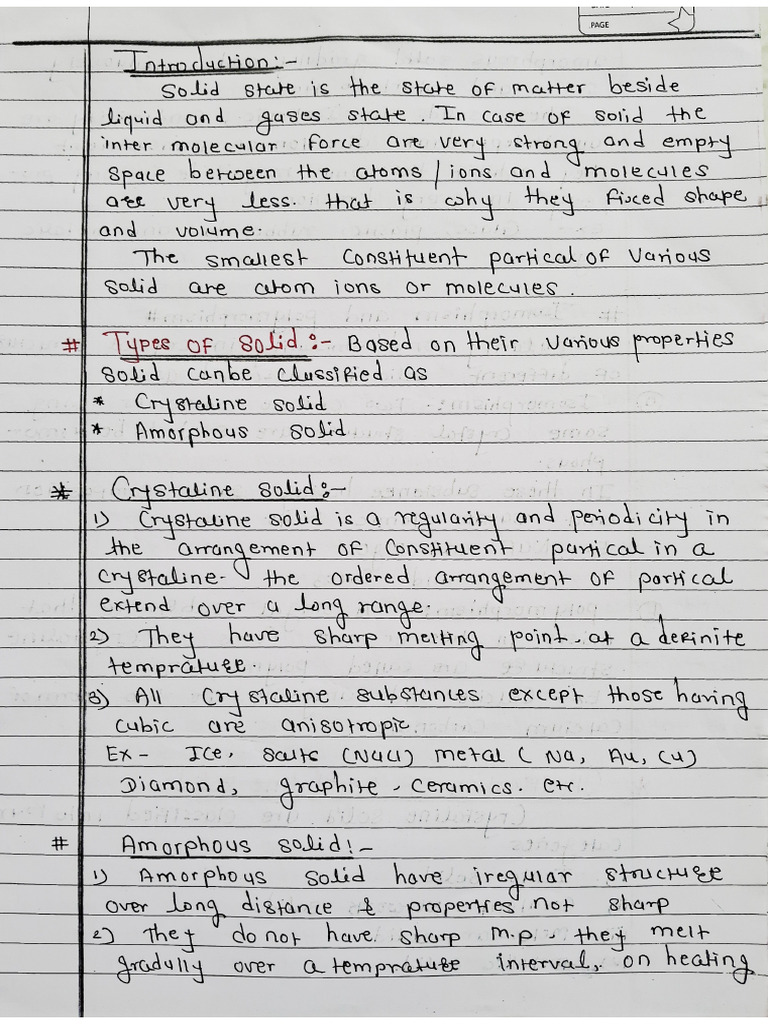 PAGE
Introduction:-
Solid state is the state of matter beside
liquid and gases state. In case of solid the
inter molecular force are very strong and empty
space between the atoms/ions and molecules
are very less. that is why they fixed shape
and volume.
The smallest constituent partical of various
solid are atom ions or molecules.
# Types of solid:- Based on their various properties
solid canbe classified as
* Crystaline solid
* Amorphous solid
* Crystaline solid:-
1) Crystaline solid is a regularity and periodicity in
the arrangement of constituent partical in a
crystaline- the ordered arrangement of partical
extend over a long range.
2) They have sharp melting point at a definite
temprature.
3) All crystaline substances except those having
cubic are anisotropic
Ex- Ice, salts (NaCl) metal (Na, Au, Cu)
Diamond, graphite, ceramics. etc.
# Amorphous solid:-
1) Amorphous solid have irregular structure
over long distance & properties not sharp
2) They do not have sharp m.p. they melt
gradully over a temprature interval, on heating